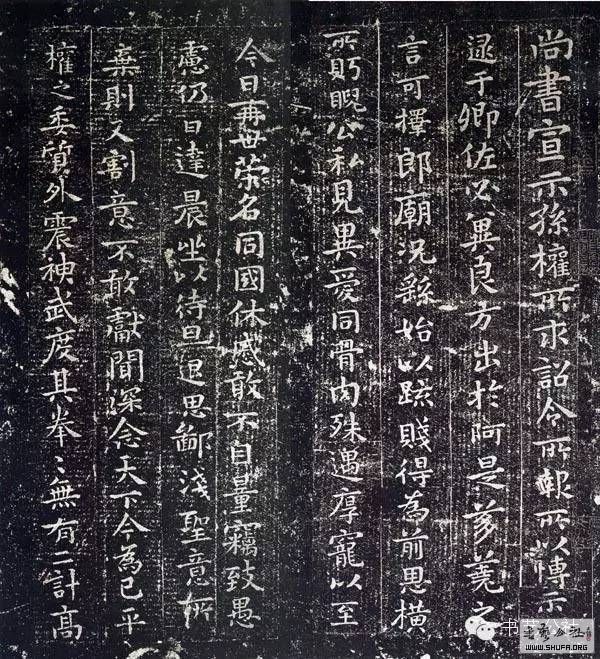 尚書宣示孫權所求詔令所報所以博示
逮于卿佐必冀良方出於阿是芻蕘之
言可擇郎廟況繇始以疏賤得為前恩橫
所盻睨公私見異愛同骨肉殊遇厚寵以至
今日再世榮名同國休慼敢不自量竊致愚
慮仍日達晨坐以待旦退思鄙淺聖意所
棄則又割意不敢獻聞深念天下今為已平
權之委質外震神武度其拳〻無有二計高
书艺公社
书艺公社
WWW.SHUFA.ORG